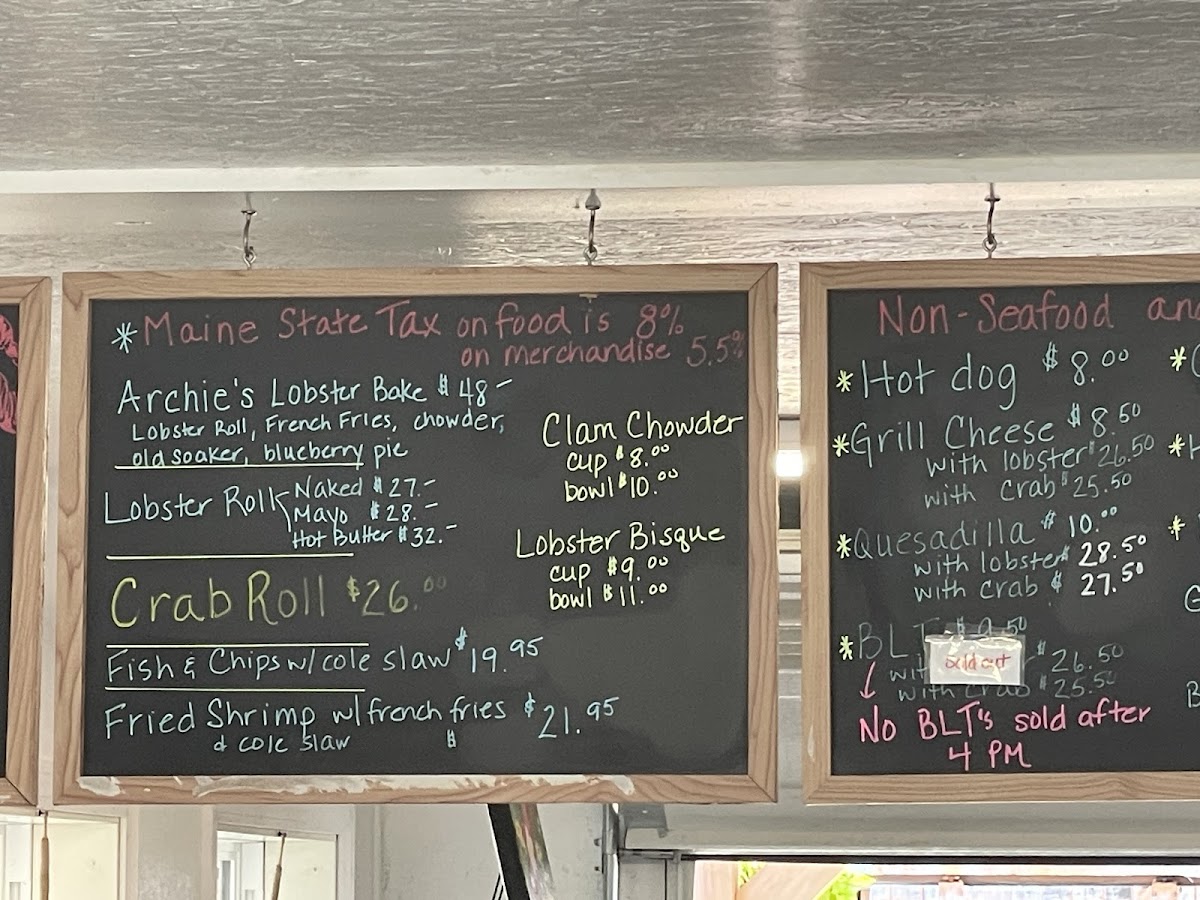 * Maine State Tax on food is 8%
on merchandise 5.5%
Archie's Lobster Bake $48-
Lobster Roll, French Fries, chowder,
old soaker, blueberry pie
Lobster Roll Naked $27.-
Mayo $28.-
Hot Butter $32.-
Crab Roll $26.00
Fish & Chips w/ cole slaw $19.95
Fried Shrimp w/ french fries $21.95
& cole slaw
Clam Chowder
cup $8.00
bowl $10.00
Lobster Bisque
cup $9.00
bowl $11.00
Non-Seafood an
* Hot dog $8.00
* Grill Cheese $8.50
with lobster $26.50
with crab $25.50
* Quesadilla $10.00
with lobster $28.50
with crab $27.50
* BLT $9.50
sold out
$26.50
with crab $25.50
No BLT's sold after
4 PM